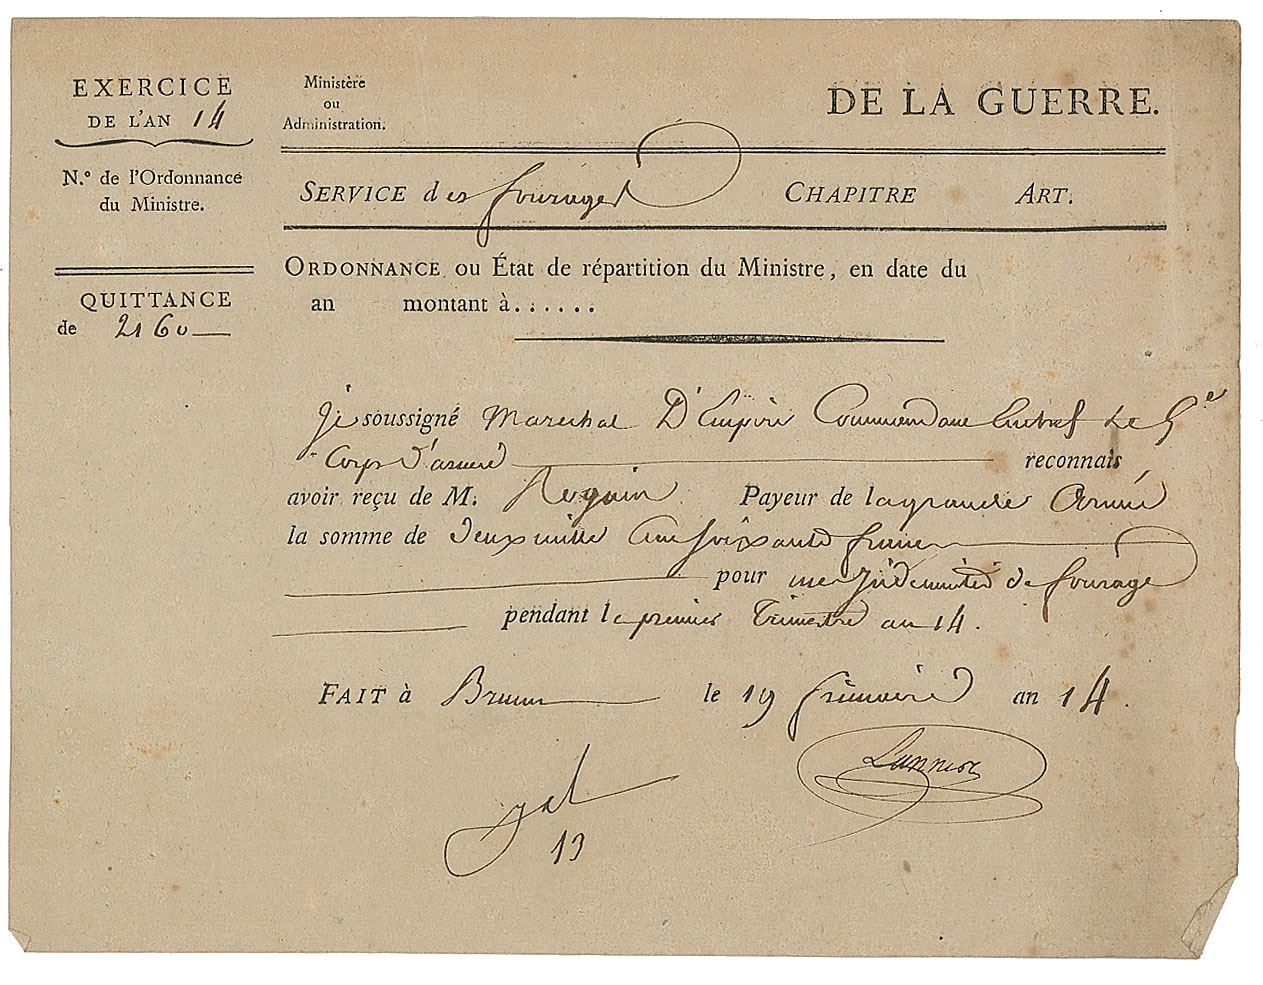 EXERCICE
DE L'AN 14
N.º de l'Ordonnance
du Ministre.
QUITTANCE
de 2160
Ministère
ou
Administration.
DE LA GUERRE.
SERVICE des fourages CHAPITRE ART.
ORDONNANCE ou État de répartition du Ministre, en date du
an montant à......
Je soussigné Marechal D'Empire Commandant en chef Le 5e
Corps d'armée reconnais
avoir reçu de M. Roguin Payeur de la grande Armée
la somme de deux mille cent soixante francs
pour mes Indemnités de fourage
pendant le premier Trimestre an 14.
FAIT à Brunn le 19 frimaire an 14.
Lannes
13